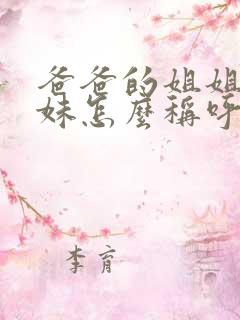 爸爸的姐姐
妹怎麼稱呼
李育